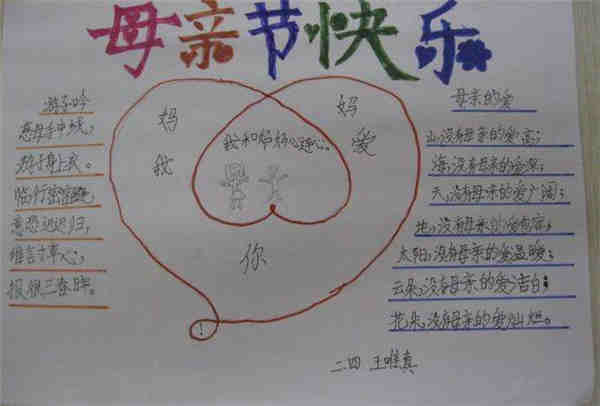 母亲节快乐
游子吟
慈母手中线,
游子身上衣。
临行密密缝,
意恐迟迟归,
谁言寸草心,
报得三春晖。
妈 妈
我 爱
你!
我和妈妈心连心。
母亲的爱
山,没有母亲的爱高;
海,没有母亲的爱深;
天,没有母亲的爱广阔;
地,没有母亲的爱宽容;
太阳,没有母亲的爱温暖;
云朵,没有母亲的爱洁白;
花朵,没有母亲的爱灿烂。
二四 王唯真